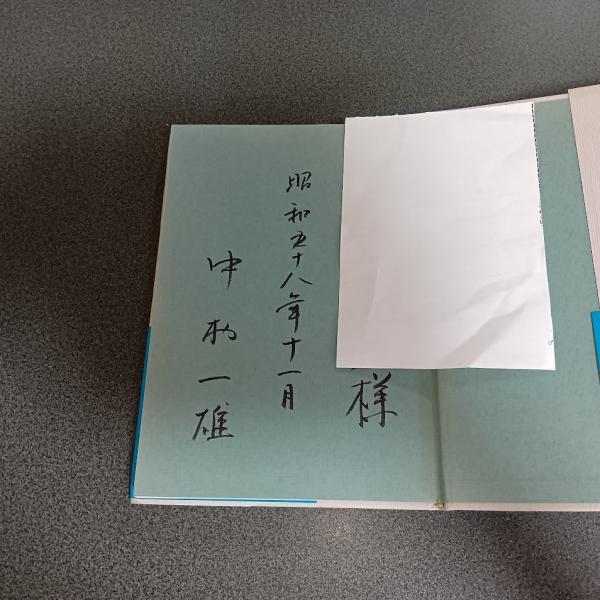 様
昭和五十八年十一月
中村一雄